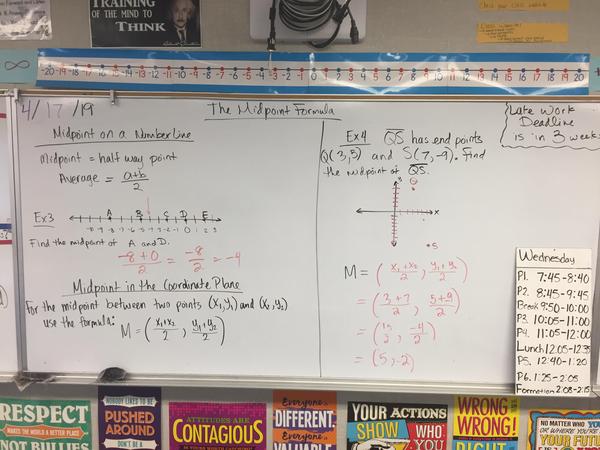 TRAINING
OF THE MIND TO
THINK
∞
-20 -19 -18 -17 -16 -15 -14 -13 -12 -11 -10 -9 -8 -7 -6 -5 -4 -3 -2 -1 0 1 2 3 4 5 6 7 8 9 10 11 12 13 14 15 16 17 18 19 20
4/17/19
The Midpoint Formula
Midpoint on a Number Line
Midpoint = half way point
Average = a+b/2
Ex3
A B C D E
Find the midpoint of A and D.
-8+0/2 = -8/2 = -4
Midpoint in the Coordinate Plane
For the midpoint between two points (x₁,y₁) and (x₂,y₂)
use the formula:
M = (x₁+x₂/2, y₁+y₂/2)
Ex4 QS has end points
Q(3,5) and S(7,-9). Find
the midpoint of QS.
x
S
M = (x₁+x₂/2, y₁+y₂/2)
= (3+7/2, 5+9/2)
= (-4/2)
= (5,-2)
Late Work
Deadline
is in 3 weeks
Wednesday
P1. 7:45-8:40
P2. 8:45-9:45
Break 9:50-10:00
P3. 10:05-11:00
P4. 11:05-12:00
Lunch 12:05-12:35
P5. 12:40-1:20
P6. 1:25-2:05
Formation 2:08-2:15
RESPECT
MAKES THE WORLD A BETTER PLACE
NOT BULLIES
NOBODY LIKES TO BE
PUSHED
AROUND
DON'T BE A
ATTITUDES ARE
CONTAGIOUS
Everyone is
DIFFERENT.
Everyone is
VALUABLE
YOUR ACTIONS
SHOW WHO
YOU
WRONG!
WRONG!
RIGHT
NO MATTER WHO
YOU